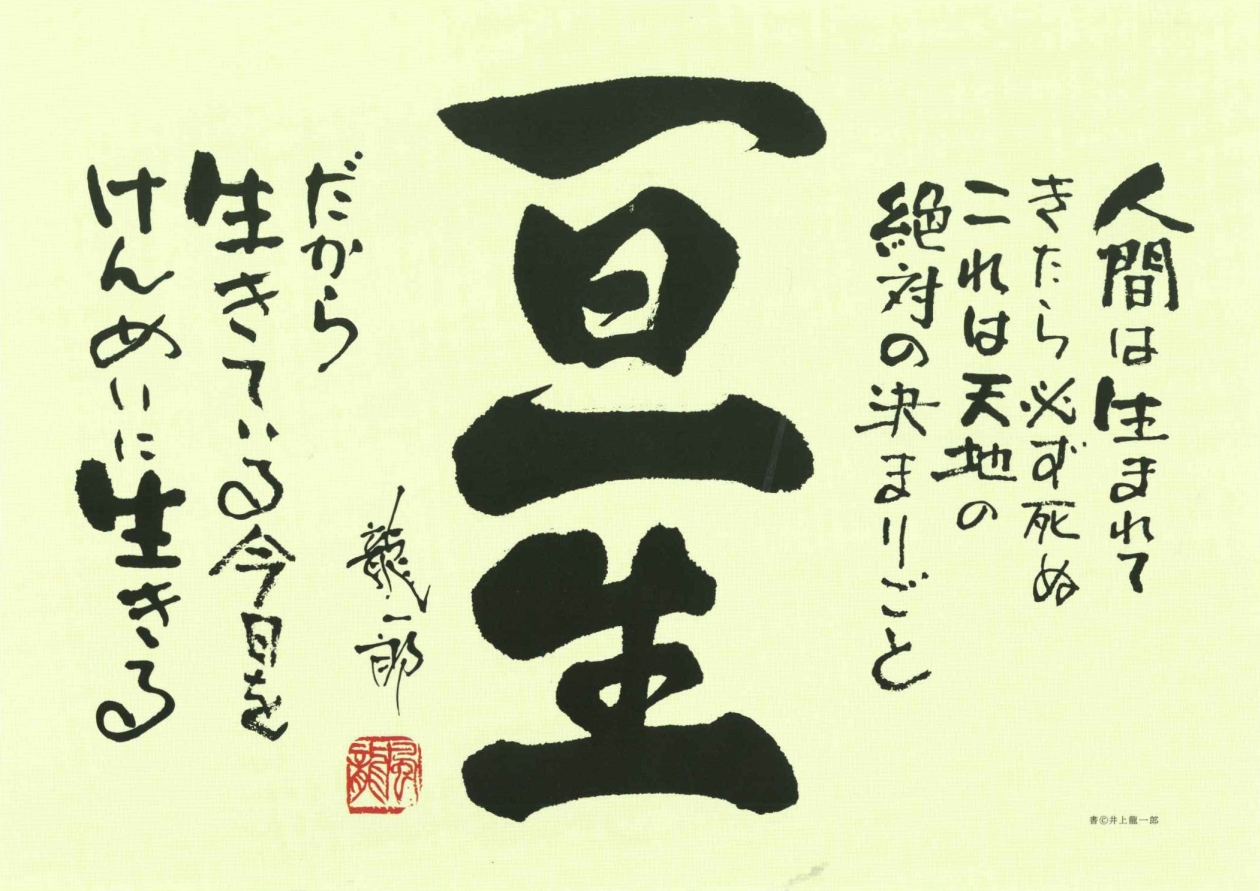 人間は生まれて
きたら必ず死ぬ
これは天地の
絶対の決まりごと
一日一生
だから
生きている今日を
けんめいに生きる
龍一郎
風龍
書Ⓒ井上龍一郎